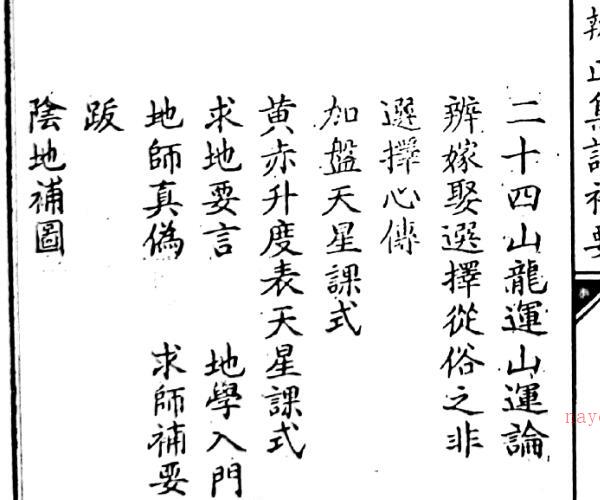 辨正真訣補要
二十四山龍運山運論
辨嫁娶選擇從俗之非
選擇心傳
加盤天星課式
黃赤升度表天星課式
求地要言 地學入門
地師真偽 求師補要
跋
陰地補圖
naye